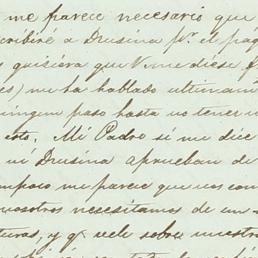 me parece necesario que
cribiré a Drusina pr. el paq
quisiera que V. me diese
es) me ha hablado ultimam
ningun paso hasta no tener
esto. Mi Padre si me dice
ni Drusina aprueban de
mpoco me parece que nos con
nosotros necesitamos de un
turas, y q vele sobre nuestro